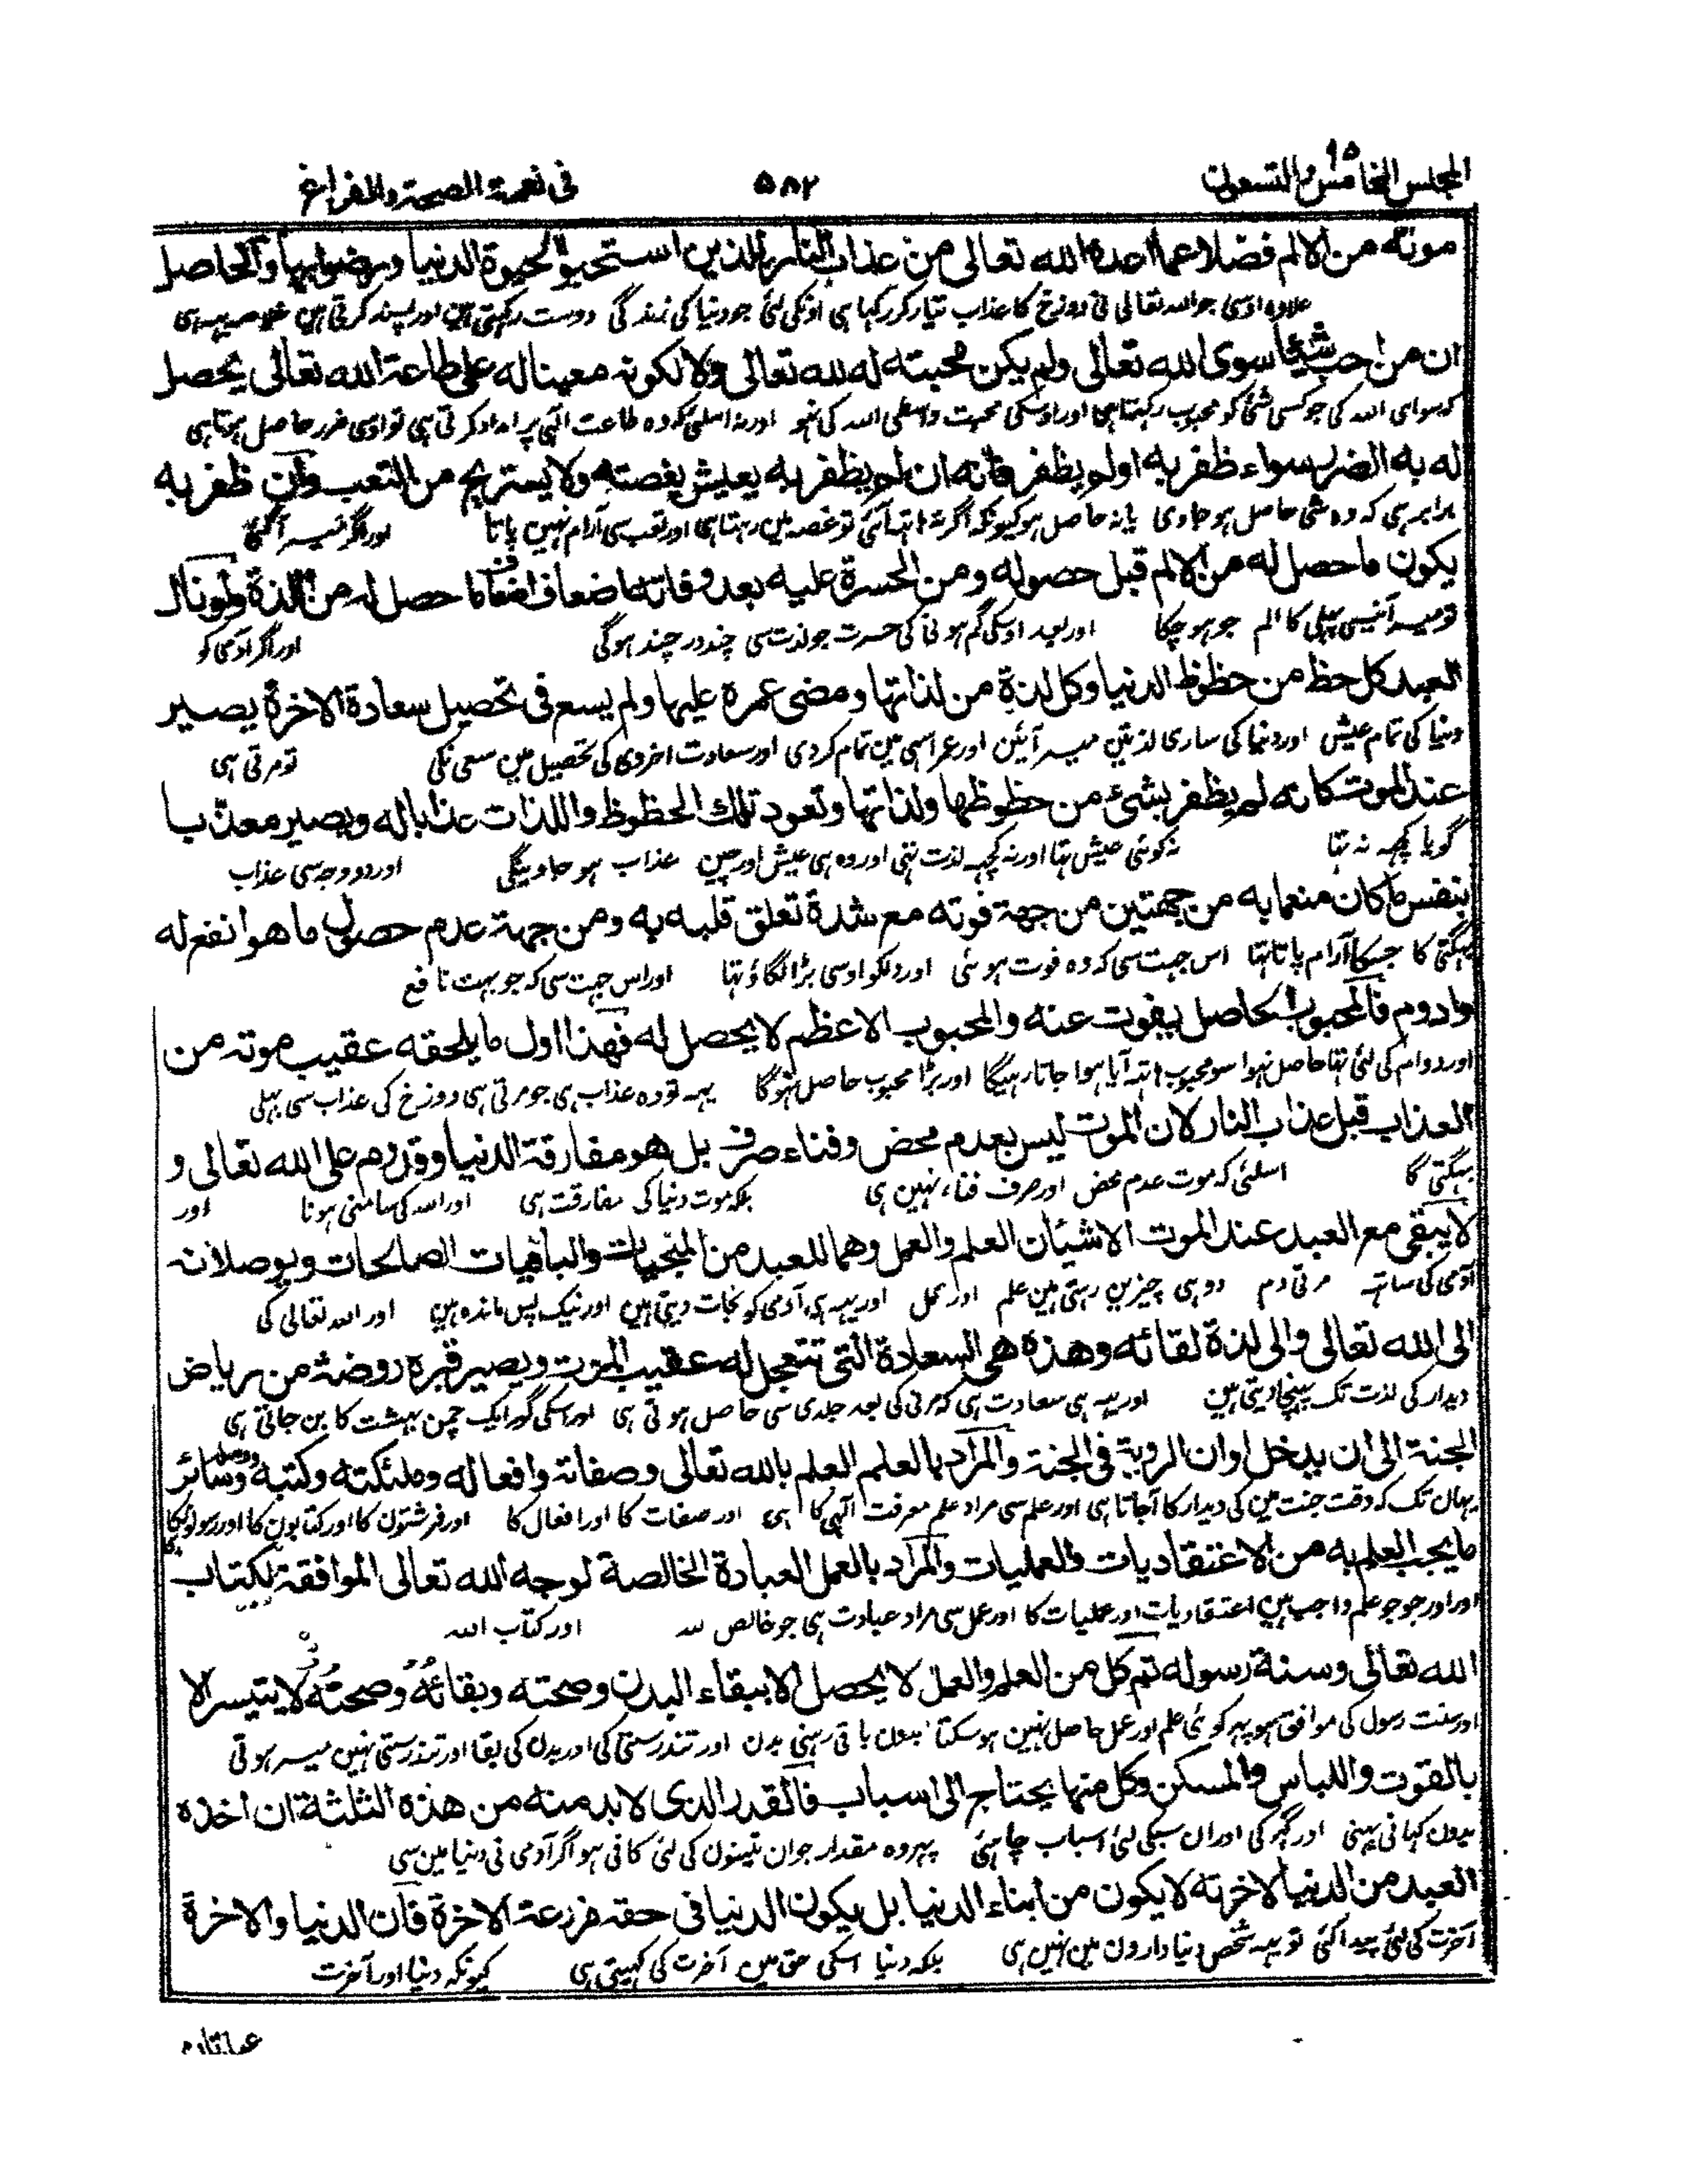 المجلس الخامس والتسعون ٩٥
٥٨٢
فی نعمة الصحة والفراغ
موته من الالم فضلا عما اعده الله تعالی من عذاب النار للذین استحبوا الحیوة الدنیا ورضوا بها والحاصل
علاوہ اوسی جو الله تعالی نی دوزخ کا عذاب تیار کر رکہا ہی اونکی لئی جو دنیا کی زندگی دوست رکہتی ہین اور پسند کرتی ہین خلاصہ یہہ ہی
ان من احب شیئا سوی الله تعالی ولم یکن محبته له لله تعالی ولا لکونه معینا له علی طاعة الله تعالی یحصل
کہ سوای الله کی جو کسی شئی کو محبوب رکہتا ہی اور اوسکی محبت واسطی الله کی نہو اور نہ اسلئی کہ وہ طاعت الہی پر امداد کرتی ہی تو اوسی ضرر حاصل ہوتا ہی
له به الضرر سواء ظفر به اولم یظفر فانه ان لم یظفر به یعیش بغصته ولا یستریح من التعب وان ظفر به
برابر ہی کہ وہ شی حاصل ہو جاوی یا نہ حاصل ہو کیونکہ اگر نہ ہاتہ آئی تو غصہ مین رہتا ہی اور تعب سی آرام نہین پاتا اور اگر میسر آگئی
یکون ما حصل له من الالم قبل حصوله ومن الحسرة علیه بعد وفاته اضعاف اضعاف ما حصل له من اللذة ولو نال
تو میسر آنیسی پہلی کا الم جو ہو چکا اور بعد اوسکی گم ہونی کی حسرت جو لذت سی چند در چند ہوگی اور اگر آدمی کو
العبد کل حظ من حظوظ الدنیا وکل لذة من لذاتها ومضی عمره علیها ولم یسع فی تحصیل سعادة الاخرة یصیر
دنیا کی تمام عیش اور دنیا کی ساری لذتین میسر آئین اور عمر اسی مین تمام کردی اور سعادت اخروی کی تحصیل مین سعی نکی تو مرتی ہی
عند الموت کانه لم یظفر بشیء من حظوظها ولذاتها وتعود تلك الحظوظ واللذات عذابا له ویصیر معذبا
گویا کچہہ نہ تہا نہ کوئی عیش تہا اور نہ کچہہ لذت تہی اور وہ ہی عیش اور چین عذاب ہو جاوینگی اور دو وجہ سی عذاب
بنفس ما کان منعما به من جهتین من جهة فوته مع شدة تعلق قلبه به ومن جهة عدم حصول ما هو انفع له
بہگتی کا جسکا آرام پاتا تہا اس جہت سی کہ وہ فوت ہو ئی اور دلکو اوسی بڑا لگاؤ تہا اور اس جہت سی کہ جو بہت نافع
وادوم فالمحبوب الحاصل یفوت عنه والمحبوب الاعظم لا یحصل له فهذا اول ما یلحقه عقیب موته من
اور دوام کی لئی تہا حاصل نہوا سو محبوب ہاتہ آیا ہوا جاتا رہیگا اور بڑا محبوب حاصل نہوگا یہہ تو وہ عذاب ہی جو مرتی ہی دوزخ کی عذاب سی پہلی
العذاب قبل عذاب النار لان الموت لیس بعدم محض وفناء صرف بل هو مفارقة الدنیا وقدوم علی الله تعالی و
بہگتی گا اسلئی کہ موت عدم محض اور صرف فناء نہین ہی بلکہ موت دنیا کی مفارقت ہی اور الله کی سامنی ہونا اور
لا یبقی مع العبد عند الموت الا شیئان العلم والعمل وهما للعبد من المنجیات والباقیات الصالحات ویوصلانه
آدمی کی ساتہہ مرتی دم دو ہی چیزین رہتی ہین علم اور عمل اور یہہ ہی آدمی کو نجات دیتی ہین اور نیک پس ماندہ ہین اور الله تعالی کی
الی الله تعالی والی لذة لقائه وهذه هی السعادة التی تتعجل له عقیب الموت ویصیر قبره روضة من ریاض
دیدار کی لذت تک پہنچا دیتی ہین اور یہہ ہی سعادت ہی کہ مرنی کی بعد جلدی سی حاصل ہوتی ہی اور اسکی گور ایک چمن بہشت کا بن جاتی ہی
الجنة الی ان یدخل اوان الرویة فی الجنة والمراد بالعلم العلم بالله تعالی وصفاته وافعاله وملئکته وکتبه ورسله وسائر
یہان تک کہ وقت جنت مین کی دیدار کا آجاتا ہی اور علم سی مراد علم معرفت الہی کا ہی اور صفات کا اور افعال کا اور فرشتون کا اور کتابون کا اور رسولونکا
ما یجب العلم به من الاعتقادیات والعملیات والمراد بالعمل العبادة الخالصة لوجه الله تعالی الموافقة لکتاب
اور اور جو جو علم واجب ہین اعتقادیات اور عملیات کا اور عمل سی مراد عبادت ہی جو خالص لله اور کتاب الله
الله تعالی وسنة رسوله ثم کل من العلم والعمل لا یحصل الا ببقاء البدن وصحته وبقائه وصحته لا یتیسر الا
اور سنت رسول کی موافق ہو پہر کوئی علم اور عمل حاصل نہین ہو سکتا بدون باقی رہنی بدن اور تندرستی کی اور بدن کی بقا اور تندرستی نہین میسر ہوتی
بالقوت واللباس والمسکن وکل منها یحتاج الی اسباب فالقدر الذی لا بد منه من هذه الثلثة ان اخذه
بدون کہانی پینی اور گہر کی اور ان سبکی لئی اسباب چاہئی پہر وہ مقدار جو ان تینون کی لئی کافی ہو اگر آدمی نی دنیا مین سی
العبد من الدنیا لاخرته لا یکون من ابناء الدنیا بل یکون الدنیا فی حقه مزرعة الاخرة فان الدنیا والاخرة
آخرت کی لئی پیدا کئی تو یہہ شخص دنیا دارون مین نہین ہی بلکہ دنیا اسکی حق مین آخرت کی کہیتی ہی کیونکہ دنیا اور آخرت